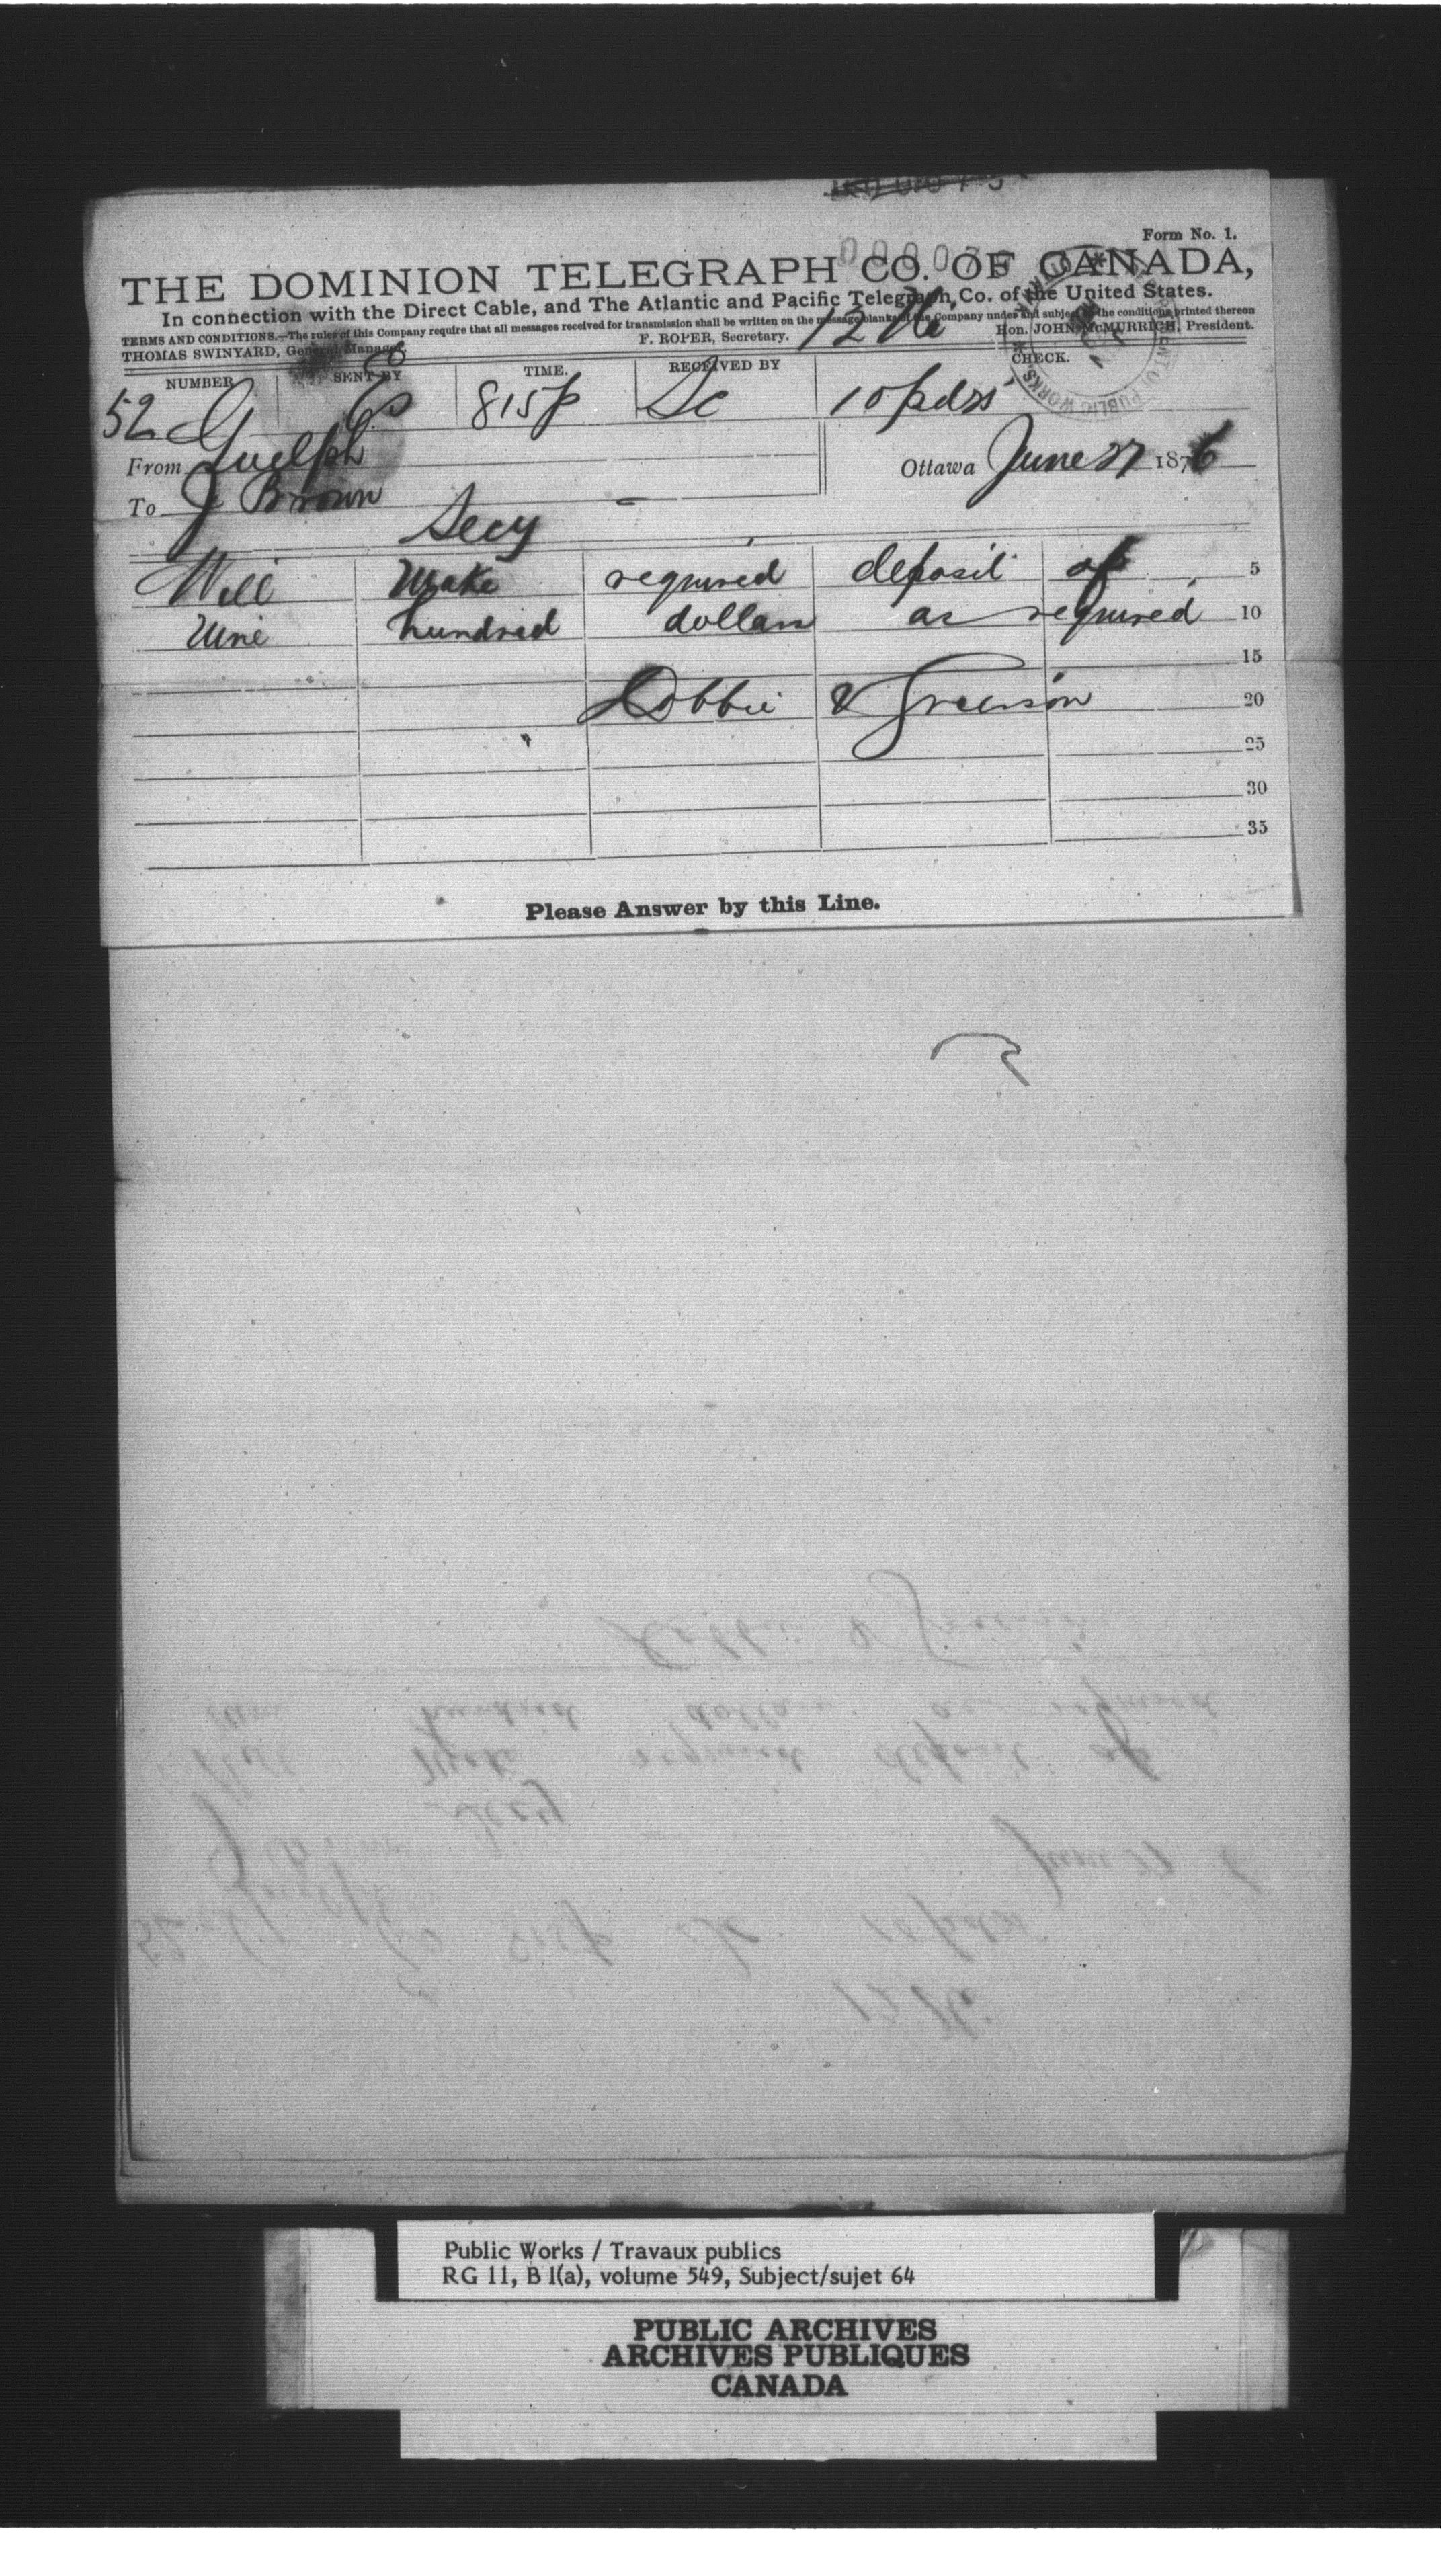 Form No. 1.
THE DOMINION TELEGRAPH CO. OF CANADA,
In connection with the Direct Cable, and The Atlantic and Pacific Telegraph Co. of the United States.
TERMS AND CONDITIONS.—The rules of this Company require that all messages received for transmission shall be written on the message blanks of the Company under and subject to the conditions printed thereon
THOMAS SWINYARD, General Manager
F. ROPER, Secretary.
Hon. JOHN McMURRICH, President.
NUMBER SENT BY TIME. RECEIVED BY CHECK.
52 G 815p
From Guelph
Ottawa June 27 1876
To J Brown
Secy
Will Make required deposit of 5
Nine hundred dollars as required 10
15
Dobbie & Grierson 20
25
30
35
Please Answer by this Line.
Public Works / Travaux publics
RG 11, B 1(a), volume 549, Subject/sujet 64
PUBLIC ARCHIVES
ARCHIVES PUBLIQUES
CANADA